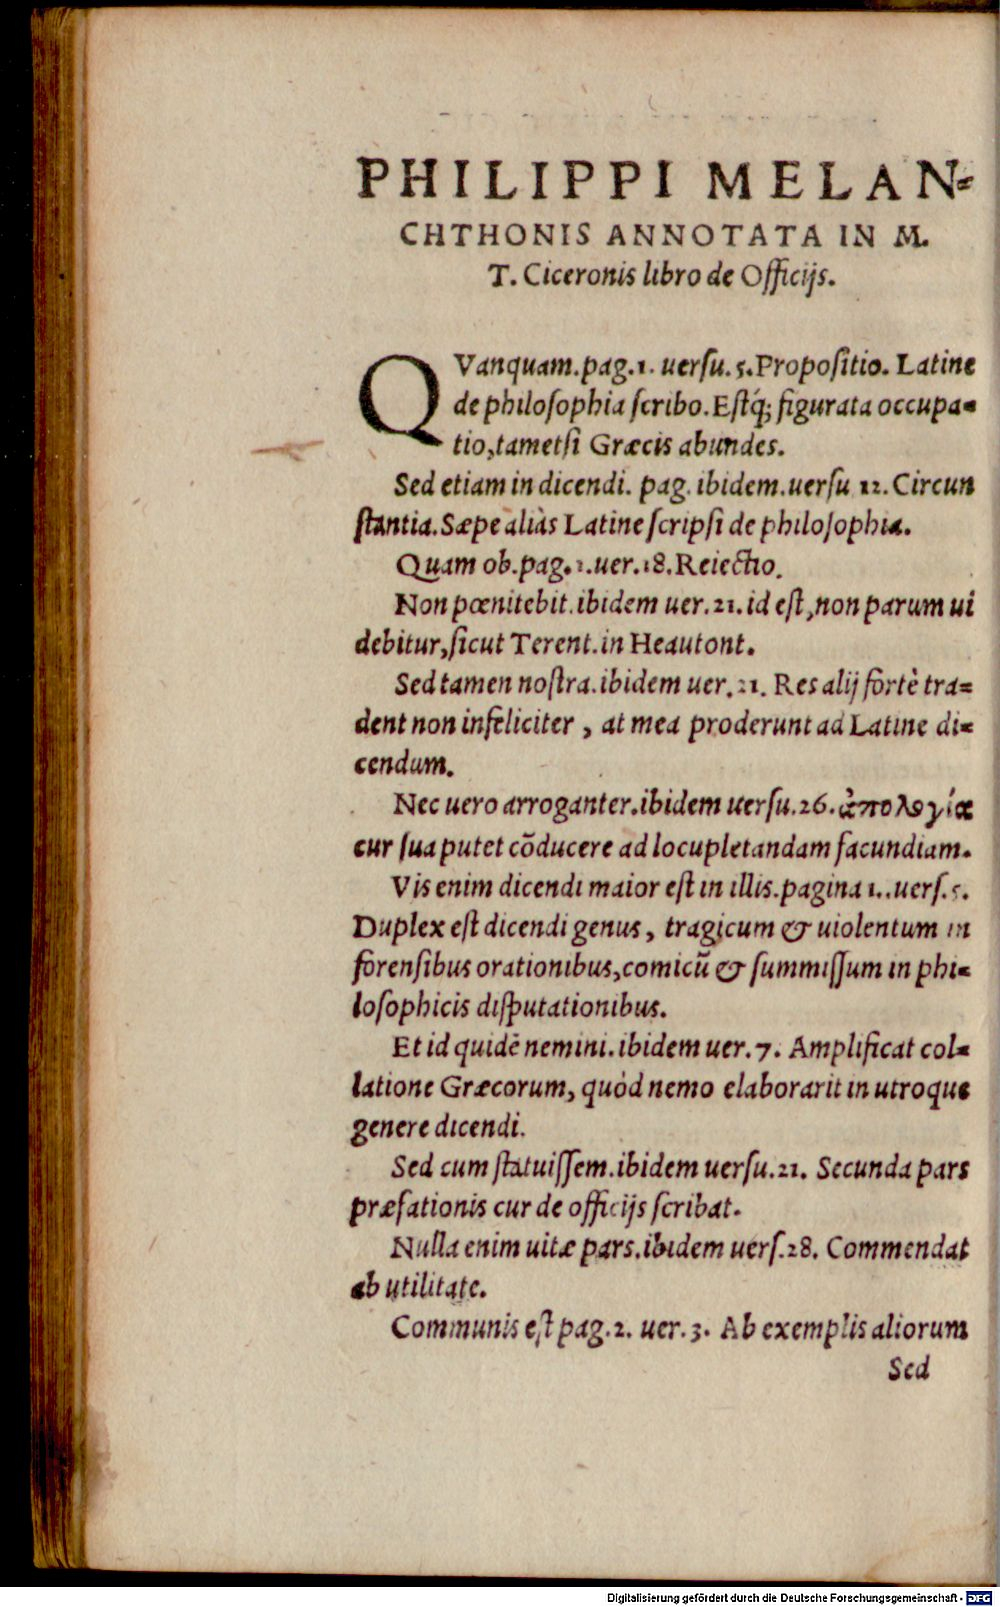 PHILIPPI MELAN-
CHTHONIS ANNOTATA IN M.
T. Ciceronis libro de Officijs.
QVanquam.pag.1. uersu.5.Propositio. Latine
de philosophia scribo.Estq́; figurata occupa-
tio,tametsi Græcis abundes.
Sed etiam in dicendi. pag. ibidem.uersu 12. Circun
stantia.Sæpe aliàs Latine scripsi de philosophia.
Quam ob.pag.1.uer.18.Reiectio.
Non pœnitebit.ibidem uer.21.id est,non parum ui
debitur,sicut Terent.in Heautont.
Sed tamen nostra.ibidem uer.21. Res alij fortè tra-
dent non infeliciter , at mea proderunt ad Latine di-
cendum.
Nec uero arroganter.ibidem uersu.26.ἀπολογία
cur sua putet cōducere ad locupletandam facundiam.
Vis enim dicendi maior est in illis.pagina 1..uers.5.
Duplex est dicendi genus, tragicum & uiolentum in
forensibus orationibus,comicū & summissum in phi-
losophicis disputationibus.
Et id quidē nemini.ibidem uer.7. Amplificat col-
latione Græcorum, quòd nemo elaborarit in utroque
genere dicendi.
Sed cum statuissem.ibidem uersu.21. Secunda pars
præfationis cur de officijs scribat.
Nulla enim uitæ pars.ibidem uers.28. Commendat
ab utilitate.
Communis est pag.2. uer.3. Ab exemplis aliorum
Sed
Digitalisierung gefördert durch die Deutsche Forschungsgemeinschaft - DFG